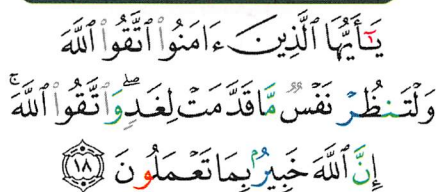 يَـٰٓأَيُّهَا ٱلَّذِينَ ءَامَنُوا۟ ٱتَّقُوا۟ ٱللَّهَ
وَلْتَنظُرْ نَفْسٌۭ مَّا قَدَّمَتْ لِغَدٍۢ ۖ وَٱتَّقُوا۟ ٱللَّهَ ۚ
إِنَّ ٱللَّهَ خَبِيرٌۢ بِمَا تَعْمَلُونَ ١٨